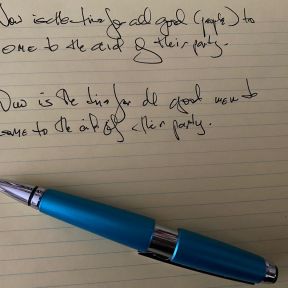 Now is the time for all good (people) to
come to the aid of their party.
Now is the time for all good men to
come to the aid of their party.